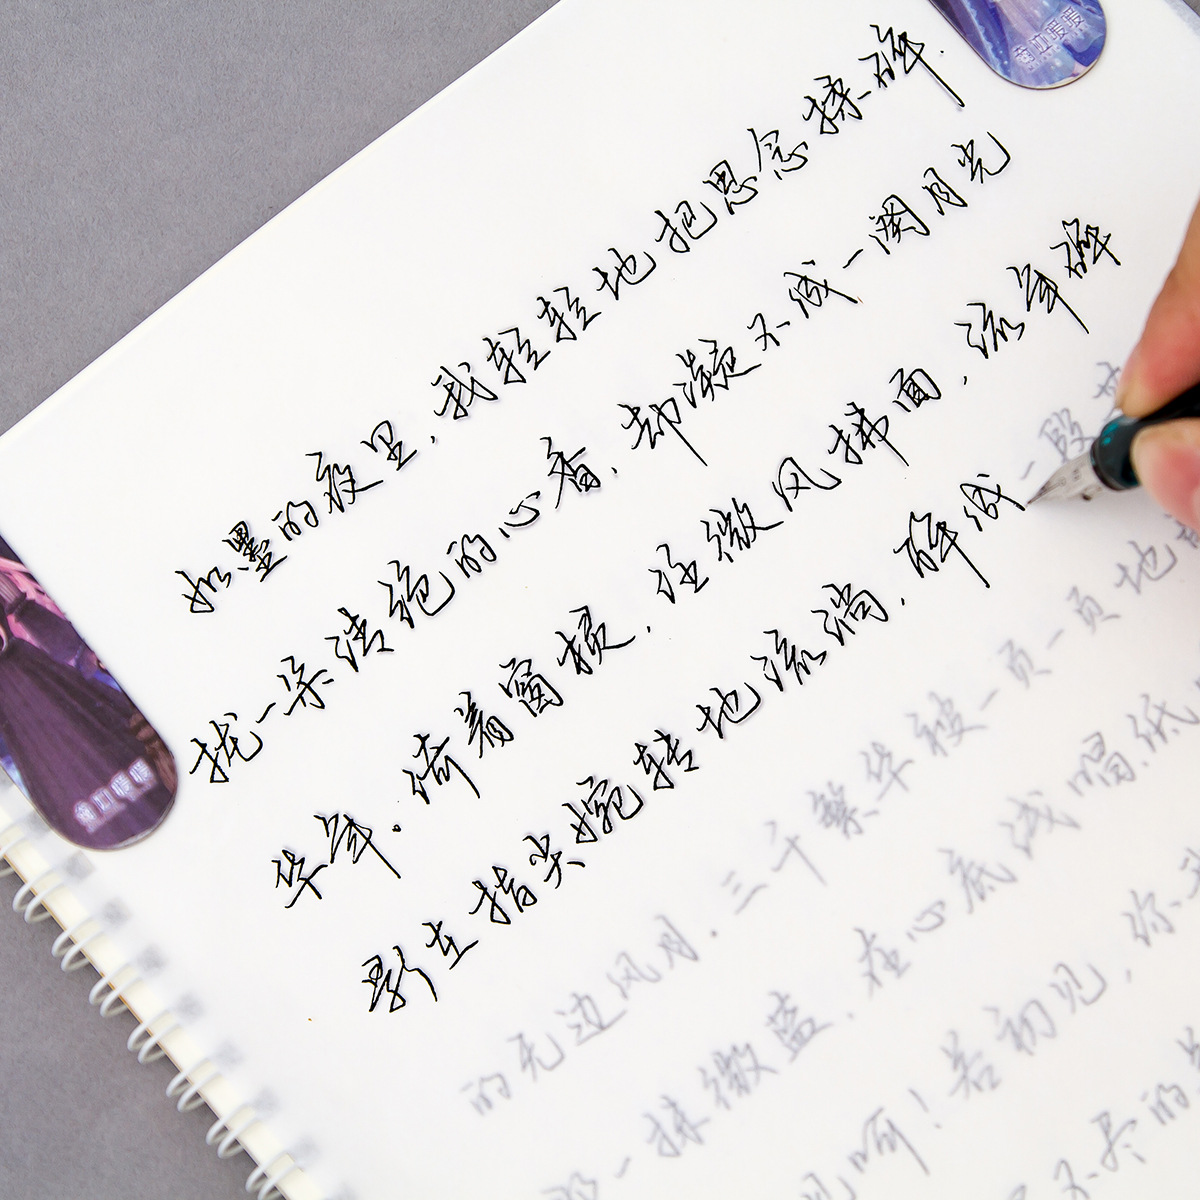 如墨的夜里,我轻轻地把思念揉碎.
拢一朵清绝的心香,却凝不成一阕月光
华年.倚着窗棂,任微风拂面,流年碎
影在指尖婉转地流淌,碎成一段
的无边风月.三千繁华被一页一页地
一抹微蓝,在心底浅唱低
呵!若初见,你
不尽的
奇迹暖暖
奇迹暖暖